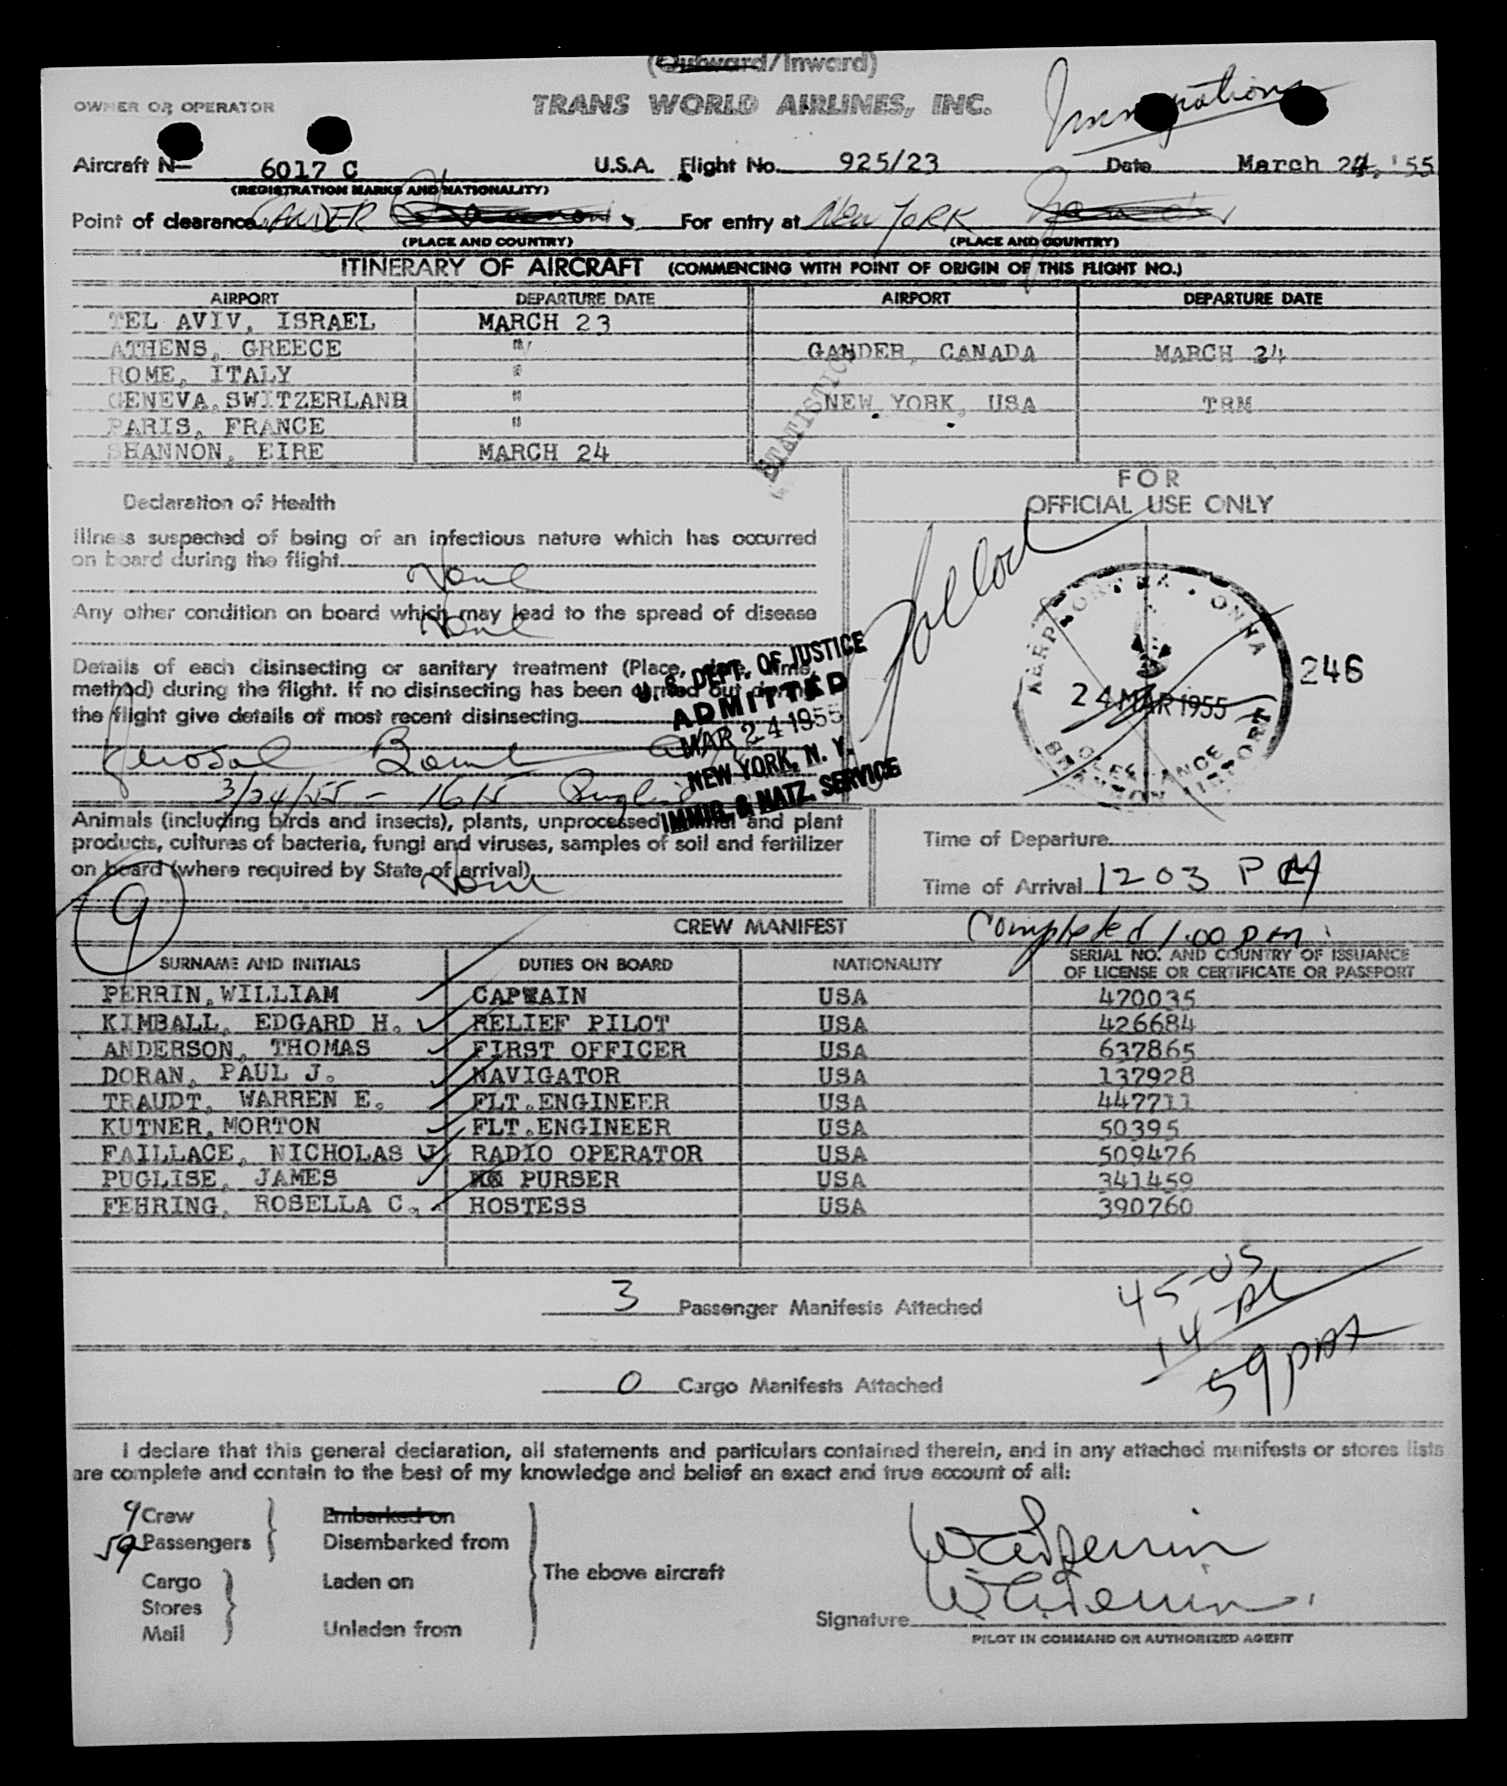 (Outward/Inward)
OWNER OR OPERATOR TRANS WORLD AIRLINES, INC. Immigration
Aircraft N- 6017 C U.S.A. Flight No. 925/23 Date March 24, '55
(REGISTRATION MARKS AND NATIONALITY)
Point of clearance GANDER For entry at New York
(PLACE AND COUNTRY) (PLACE AND COUNTRY)
ITINERARY OF AIRCRAFT (COMMENCING WITH POINT OF ORIGIN OF THIS FLIGHT NO.)
AIRPORT DEPARTURE DATE AIRPORT DEPARTURE DATE
TEL AVIV, ISRAEL MARCH 23
ATHENS, GREECE " GANDER, CANADA MARCH 24
ROME, ITALY "
GENEVA, SWITZERLAND " NEW YORK, USA TRM
PARIS, FRANCE "
SHANNON, EIRE MARCH 24
STATISTICS
FOR
OFFICIAL USE ONLY
Declaration of Health
Illness suspected of being of an infectious nature which has occurred
on board during the flight
None
Any other condition on board which may lead to the spread of disease
None
Details of each disinsecting or sanitary treatment (Place, date, time,
method) during the flight. If no disinsecting has been carried out during
the flight give details of most recent disinsecting
Aerosol Bomb
3/24/55 - 1615
U. S. DEPT. OF JUSTICE
ADMITTED
MAR 24 1955
NEW YORK, N. Y.
IMMIG. & NATZ. SERVICE
24 MAR 1955
CLEARANCE
246
Animals (including birds and insects), plants, unprocessed animal and plant
products, cultures of bacteria, fungi and viruses, samples of soil and fertilizer
on board (where required by State of arrival)
None
Time of Departure
Time of Arrival 1203 PM
9
CREW MANIFEST Completed 1:00 pm
SURNAME AND INITIALS DUTIES ON BOARD NATIONALITY SERIAL NO. AND COUNTRY OF ISSUANCE
OF LICENSE OR CERTIFICATE OR PASSPORT
PERRIN, WILLIAM CAPTAIN USA 470035
KIMBALL, EDGARD H. RELIEF PILOT USA 426684
ANDERSON, THOMAS FIRST OFFICER USA 637865
DORAN, PAUL J. NAVIGATOR USA 137928
TRAUDT, WARREN E. FLT.ENGINEER USA 447711
KUTNER, MORTON FLT.ENGINEER USA 50395
FAILLACE, NICHOLAS J RADIO OPERATOR USA 509476
PUGLISE, JAMES PURSER USA 341459
FEHRING, ROSELLA C. HOSTESS USA 390760
3 Passenger Manifests Attached
45-US
14-AL
59 pax
0 Cargo Manifests Attached
I declare that this general declaration, all statements and particulars contained therein, and in any attached manifests or stores lists
are complete and contain to the best of my knowledge and belief an exact and true account of all:
9 Crew Embarked on
59 Passengers Disembarked from
The above aircraft
Cargo Laden on
Stores
Mail Unladen from
Signature
PILOT IN COMMAND OR AUTHORIZED AGENT